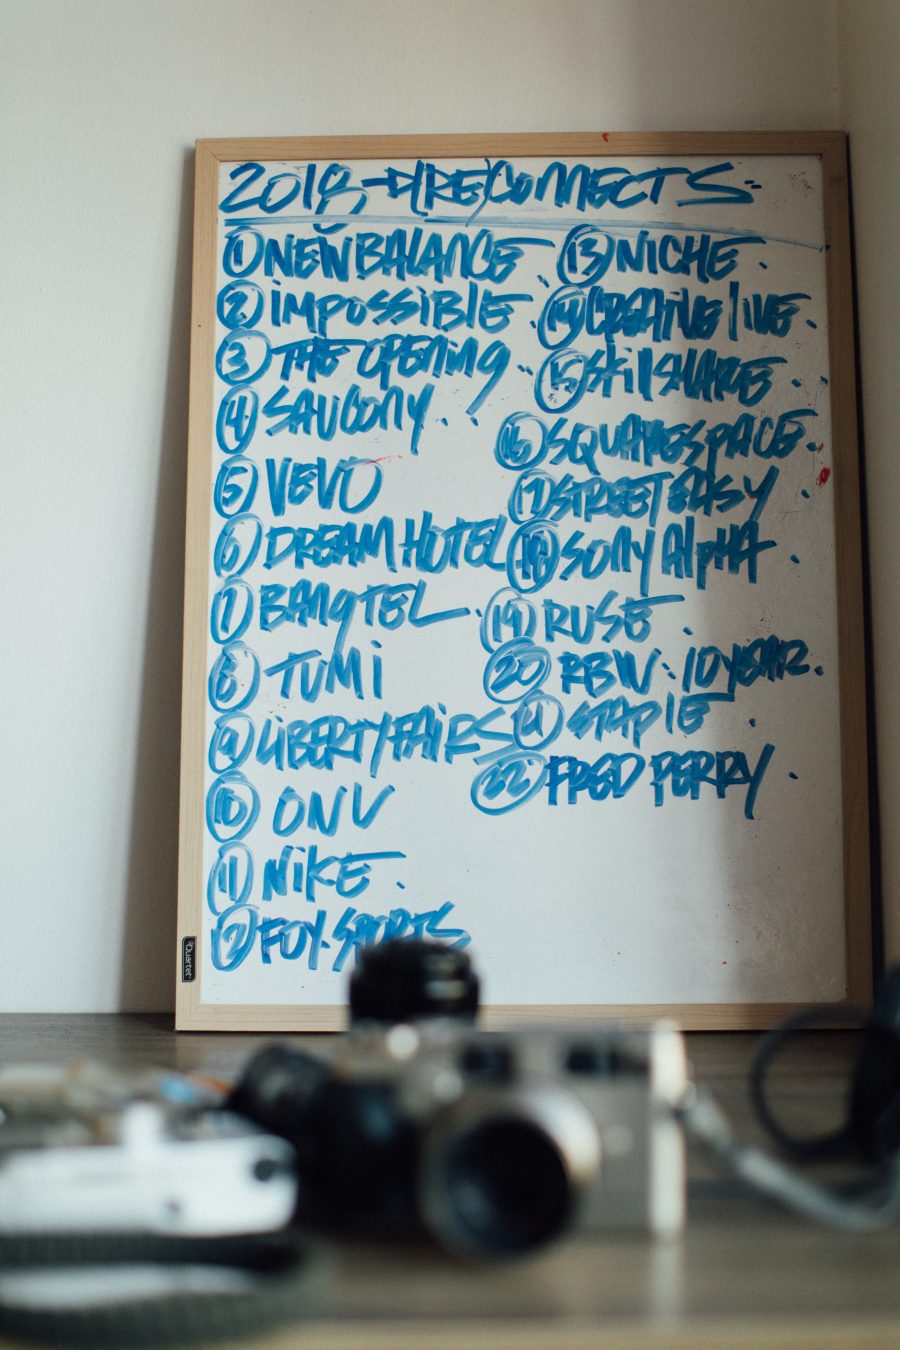 2018-D(RE)CONNECTS:
1 NEW BALANCE.
2 IMPOSSIBLE.
3 THE OPENING.
4 SAUCONY.
5 VEVO
6 DREAM HOTEL
7 BANGTEL.
8 TUMI
9 LIBERTY FAIRS
10 ONU
11 NIKE.
12 FOX SPORTS
13 NICHE.
14 CREATIVE LIVE.
15 SKILLSHARE.
16 SQUARESPACE.
17 STREETEASY.
18 SONY ALPHA.
19 RUSE.
20 RBW: 10 YEAR.
21 STAPLE.
22 FRED PERRY.
Quartet